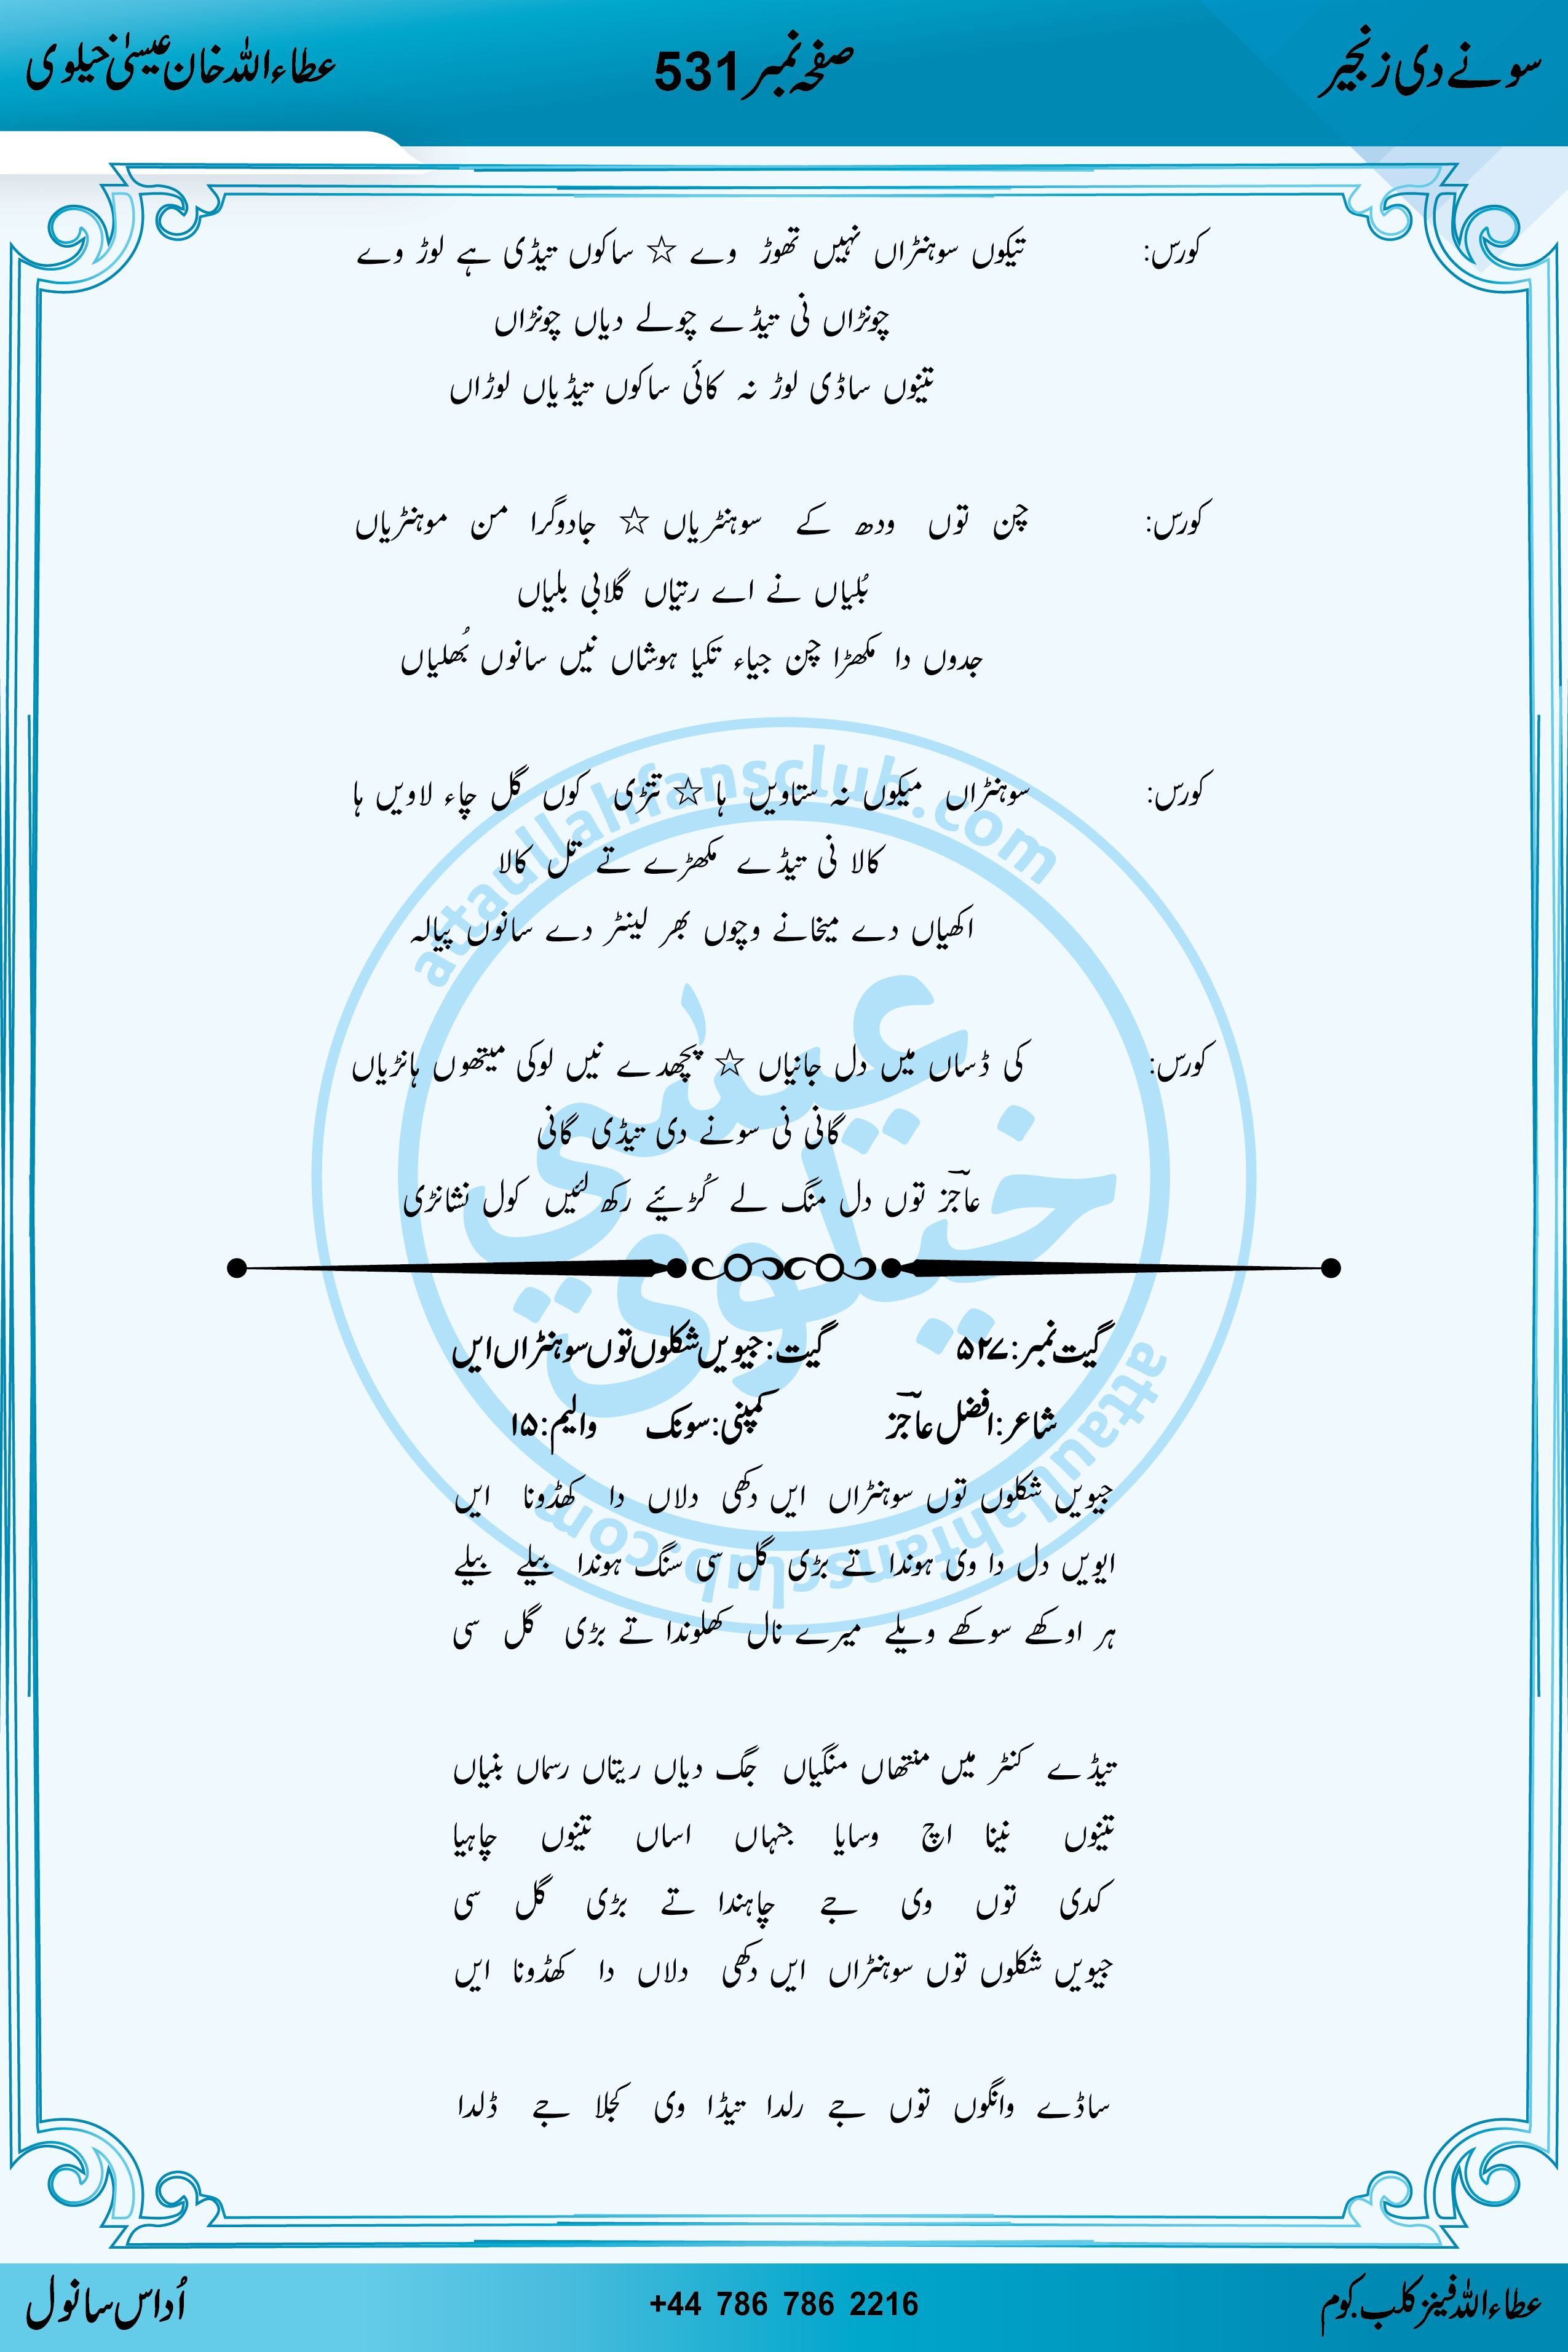 سونے دی زنجیر صفحہ نمبر 531 عطاء اللہ خان عیسیٰ خیلوی
کورس: تیکوں سوہنڑاں نہیں تھوڑ وے ☆ ساکوں تیڈی ہے لوڑ وے
چونڑاں نی تیڈے چولے دیاں چونڑاں
تینوں ساڈی لوڑ نہ کائی ساکوں تیڈیاں لوڑاں
کورس: چن توں ودھ کے سوہنڑیاں ☆ جادوگرا من موہنڑیاں
بُلیاں نے اے رتیاں گلابی بلیاں
جدوں دا مکھڑا چن جیاء تکیا ہوشاں نیں سانوں بُھلیاں
کورس: سوہنڑاں میکوں نہ ستاویں ہا ☆ تتڑی کوں گل چاء لاویں ہا
کالا نی تیڈے مکھڑے تے تل کالا
اکھیاں دے میخانے وچوں بھر لینڑ دے سانوں پیالہ
کورس: کی ڈساں میں دل جانیاں ☆ پچھدے نیں لوکی میتھوں ہانڑیاں
گانی نی سونے دی تیڈی گانی
عاجزؔ توں دل منگ لے کُڑیئے رکھ لئیں کول نشانڑی
گیت نمبر: ۵۲۷ گیت: جیویں شکلوں توں سوہنڑاں ایں
شاعر: افضل عاجزؔ کمپنی: سونک والیم: ۱۵
جیویں شکلوں توں سوہنڑاں ایں دکھی دلاں دا کھڈونا ایں
ایویں دل دا وی ہوندا تے بڑی گل سی سنگ ہوندا بیلے بیلے
ہر اوکھے سوکھے ویلے میرے نال کھلوندا تے بڑی گل سی
تیڈے کنڑ میں منتھاں منگیاں جگ دیاں ریتاں رسماں بنیاں
تینوں نینا اچ وسایا جنہاں اساں تینوں چاہیا
کدی توں وی جے چاہندا تے بڑی گل سی
جیویں شکلوں توں سوہنڑاں ایں دکھی دلاں دا کھڈونا ایں
ساڈے وانگوں توں جے رلدا تیڈا وی کجلا جے ڈلدا
attaullahfansclub.com
عیسیٰ خیلوی
attaullahfansclub.com
عطاء اللہ فینز کلب.کوم +44 786 786 2216 اُداس سانول